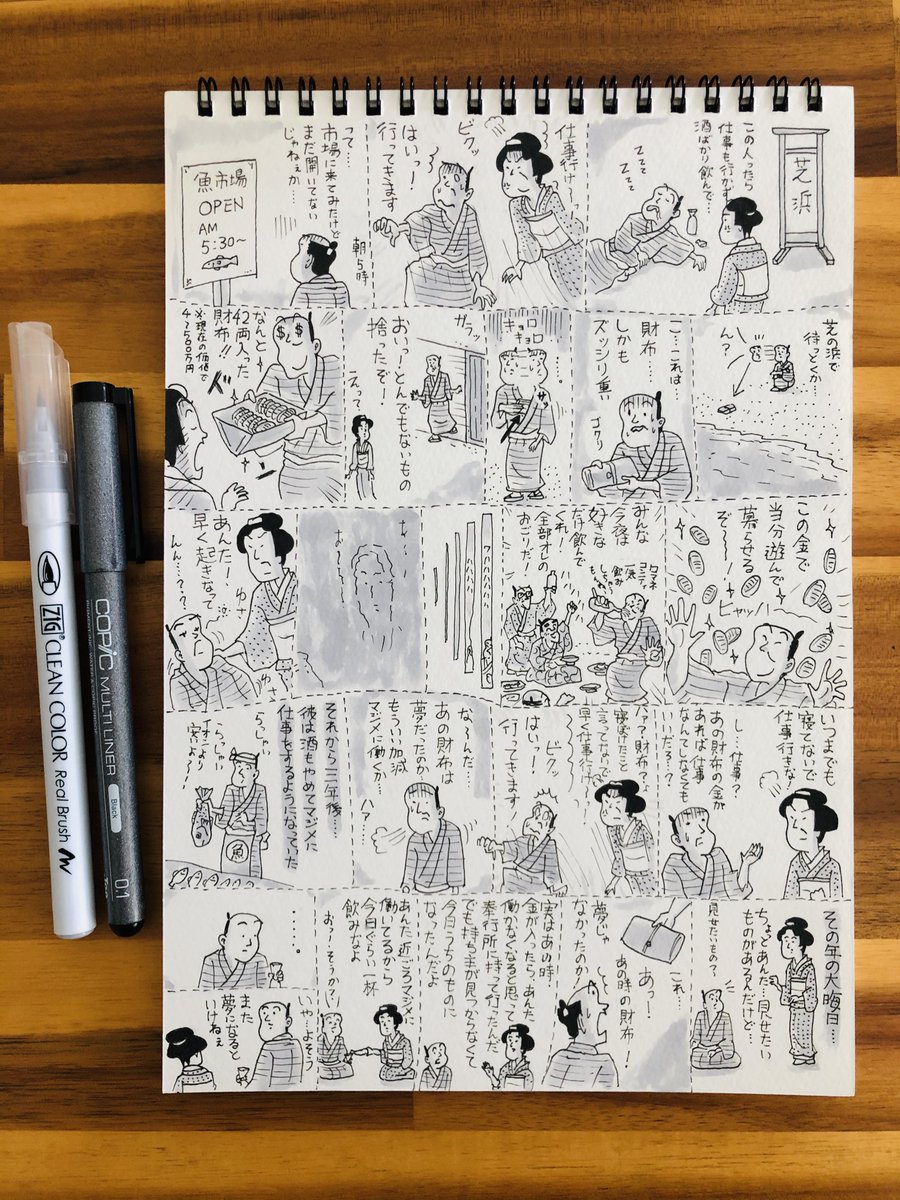 芝浜
この人ったら
仕事も行かず
酒ばかり飲んで…
Zzzz
Zzzz
仕事行け〜っ
ビクッ
はいっ!
行ってきます
って…
市場に来てみたけど
まだ開いてない
じゃねぇか…
朝5時
魚市場
OPEN
AM
5:30〜
芝の浜で
待っとくか…
ん?
こ…これは
財布…
しかも
ズッシリ重い
ゴク…
キョロ
キョロ
…。
サッ
ガラッ
おいっ〜とんでもないもの
捨ったぞ!
えっ?
なんと
42両入った
財布!!
※現在の価値で
4〜500万円
この金で
当分遊んで
暮らせる
ぞ〜!
ビャッハ〜
みんな
今夜は
好きな
だけ飲んで
くれ!
全部オレの
おごりだ!
ロマネ
コンティ
一気
飲み
しちゃ
もん
ワハハハハ
お〜
お〜
あんた!
早く起きなって
ゆさ
ゆさ
んん…?
いつまでも
寝てないで
仕事行きな!
し…仕事?
あの財布の金が
あれば仕事
なんてしなくても
いいだろ…?
??財布?
寝ぼけたこと
言ってないで
早く仕事行け〜
ビクッ
はいっ!
行ってきます!
な〜んだ…
あの財布は
夢だったのか…
もういい加減
マジメに働くか…
ハァ…
それから三年後…
彼は酒もやめてマジメに
仕事をするようになってた
らっしゃい
らっしゃい
安いよ〜
魚
その年の大晦日…
ちょっとあんた…見せたい
ものがあるんだけど…
見せたいもの?
これ…
あっ!
あの時の財布!
夢じゃ
なかったのか
実はあの時
金が入ったら、あんた
働かなくなると思って
奉行所に持って行ったんだ
でも持ち主が見つからなくて
今日うちのものに
なったんだよ
あんた近ごろマジメに
働いてるから
今日ぐらい一杯
飲みなよ
おっ!そうか?
…。
いや、よそう
また
夢になると
いけねぇ
ZIG CLEAN COLOR Real Brush
COPIC MULTI LINER
PIGMENT INK
Black
0.1